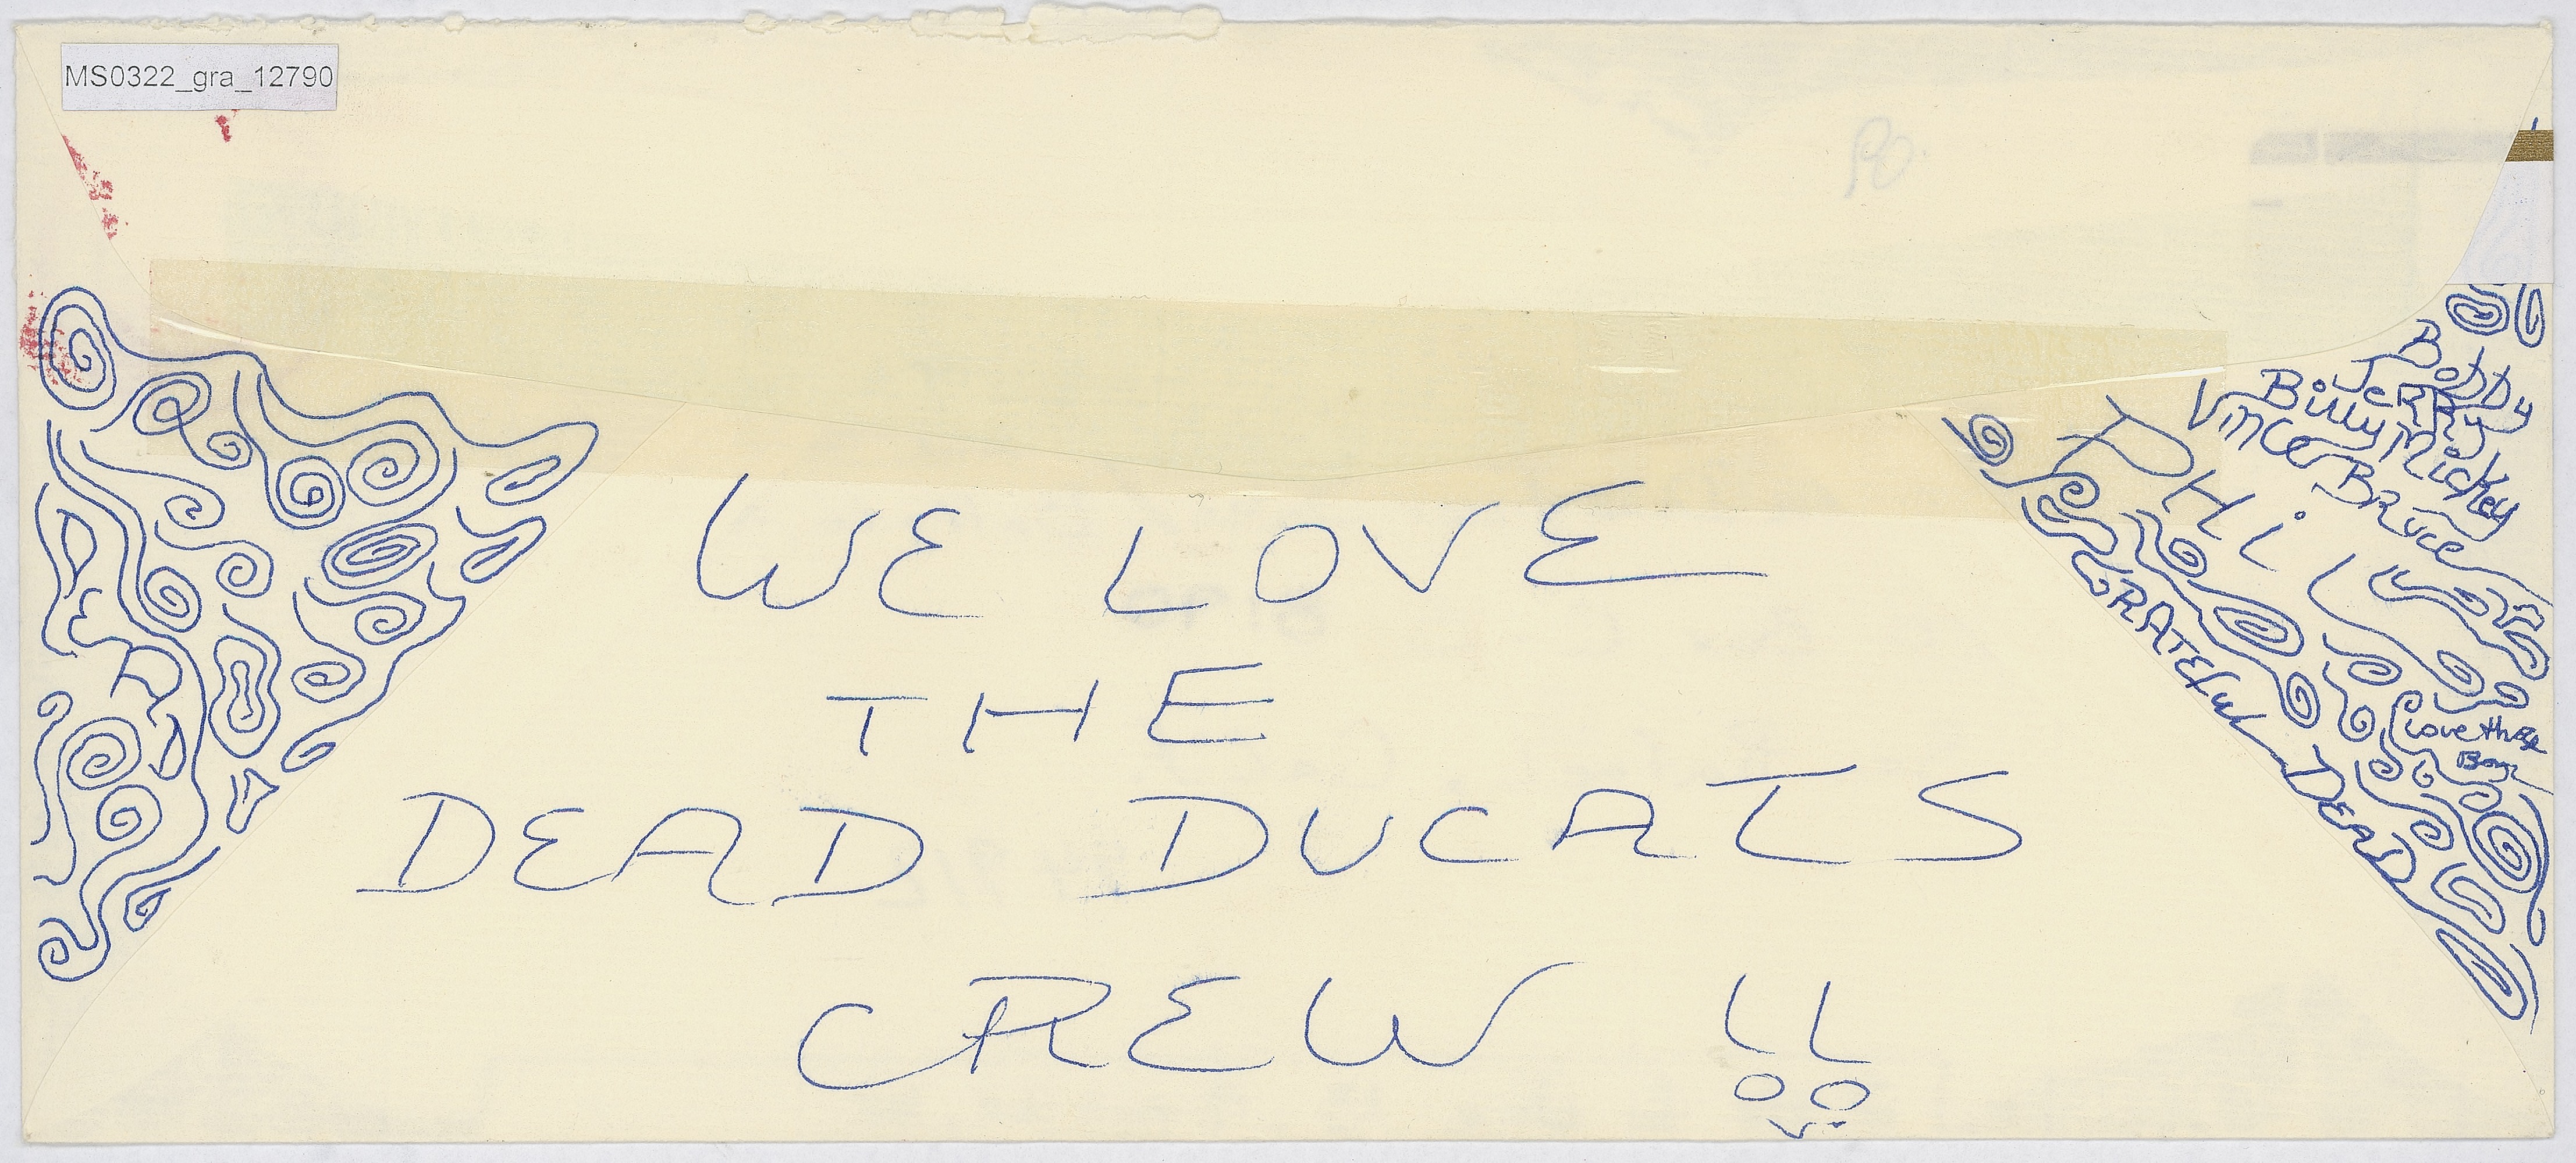 MS0322_gra_12790
WE LOVE
THE
DEAD DUCATS
CREW !!
DEAD
Bobby
JeRRy
Billy Mickey
Vince BRuce
PHiL
GRATEFuL DEAD
Love those
Boys